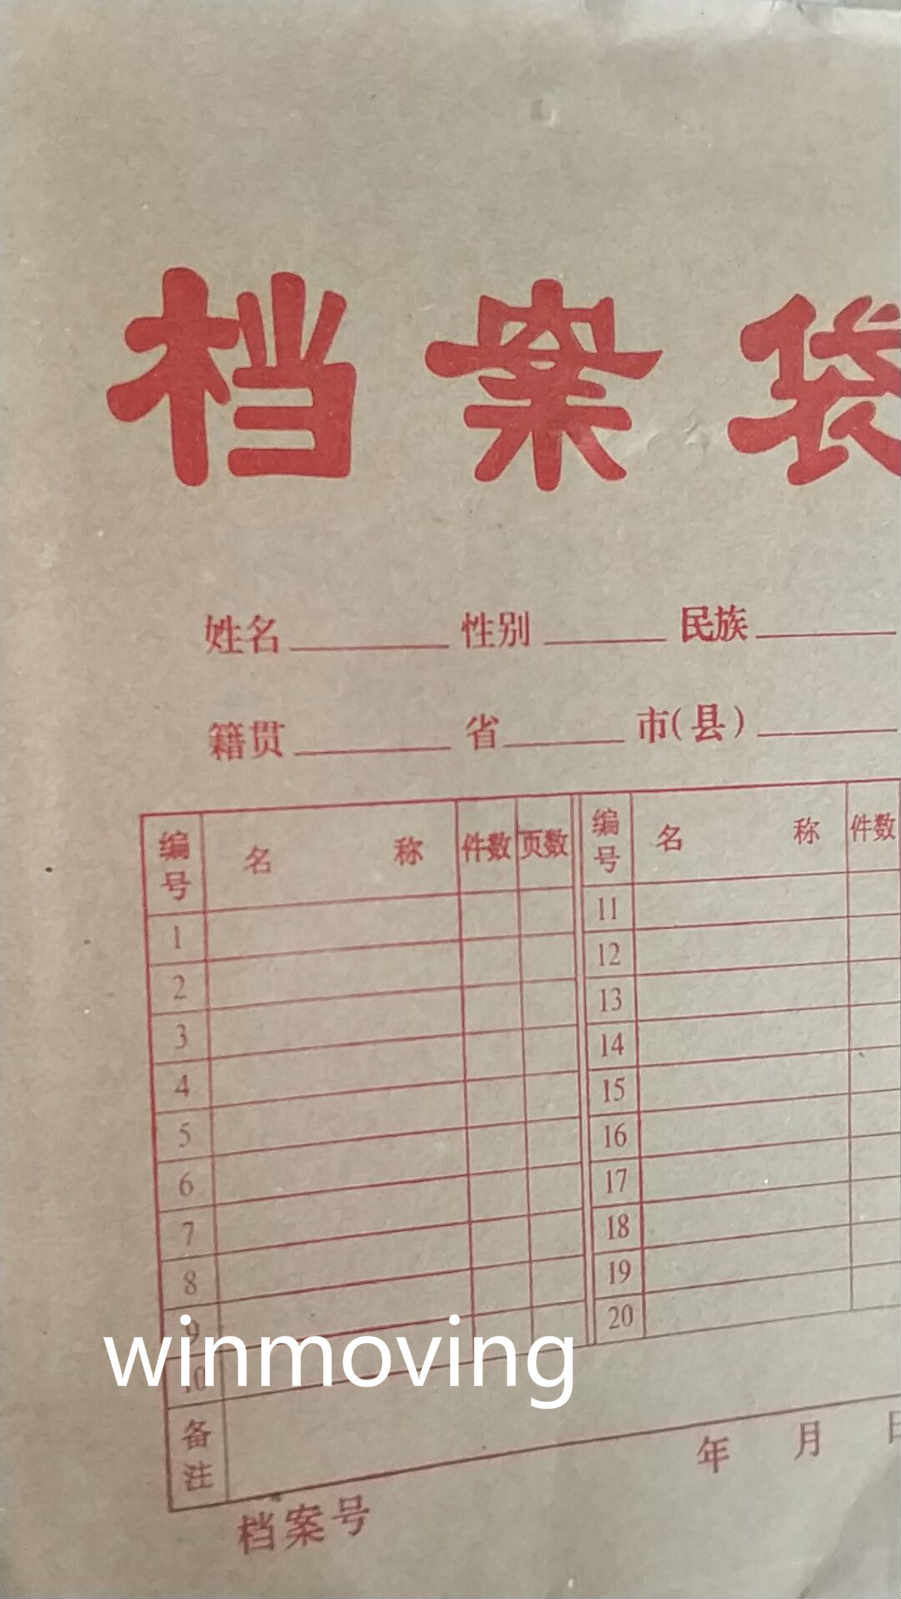 档案袋
姓名 性别 民族
籍贯 省 市(县)
编号 名称 件数 页数 编号 名称 件数
1 11
2 12
3 13
4 14
5 15
6 16
7 17
8 18
9 19
10 20
winmoving
备注
年 月 日
档案号